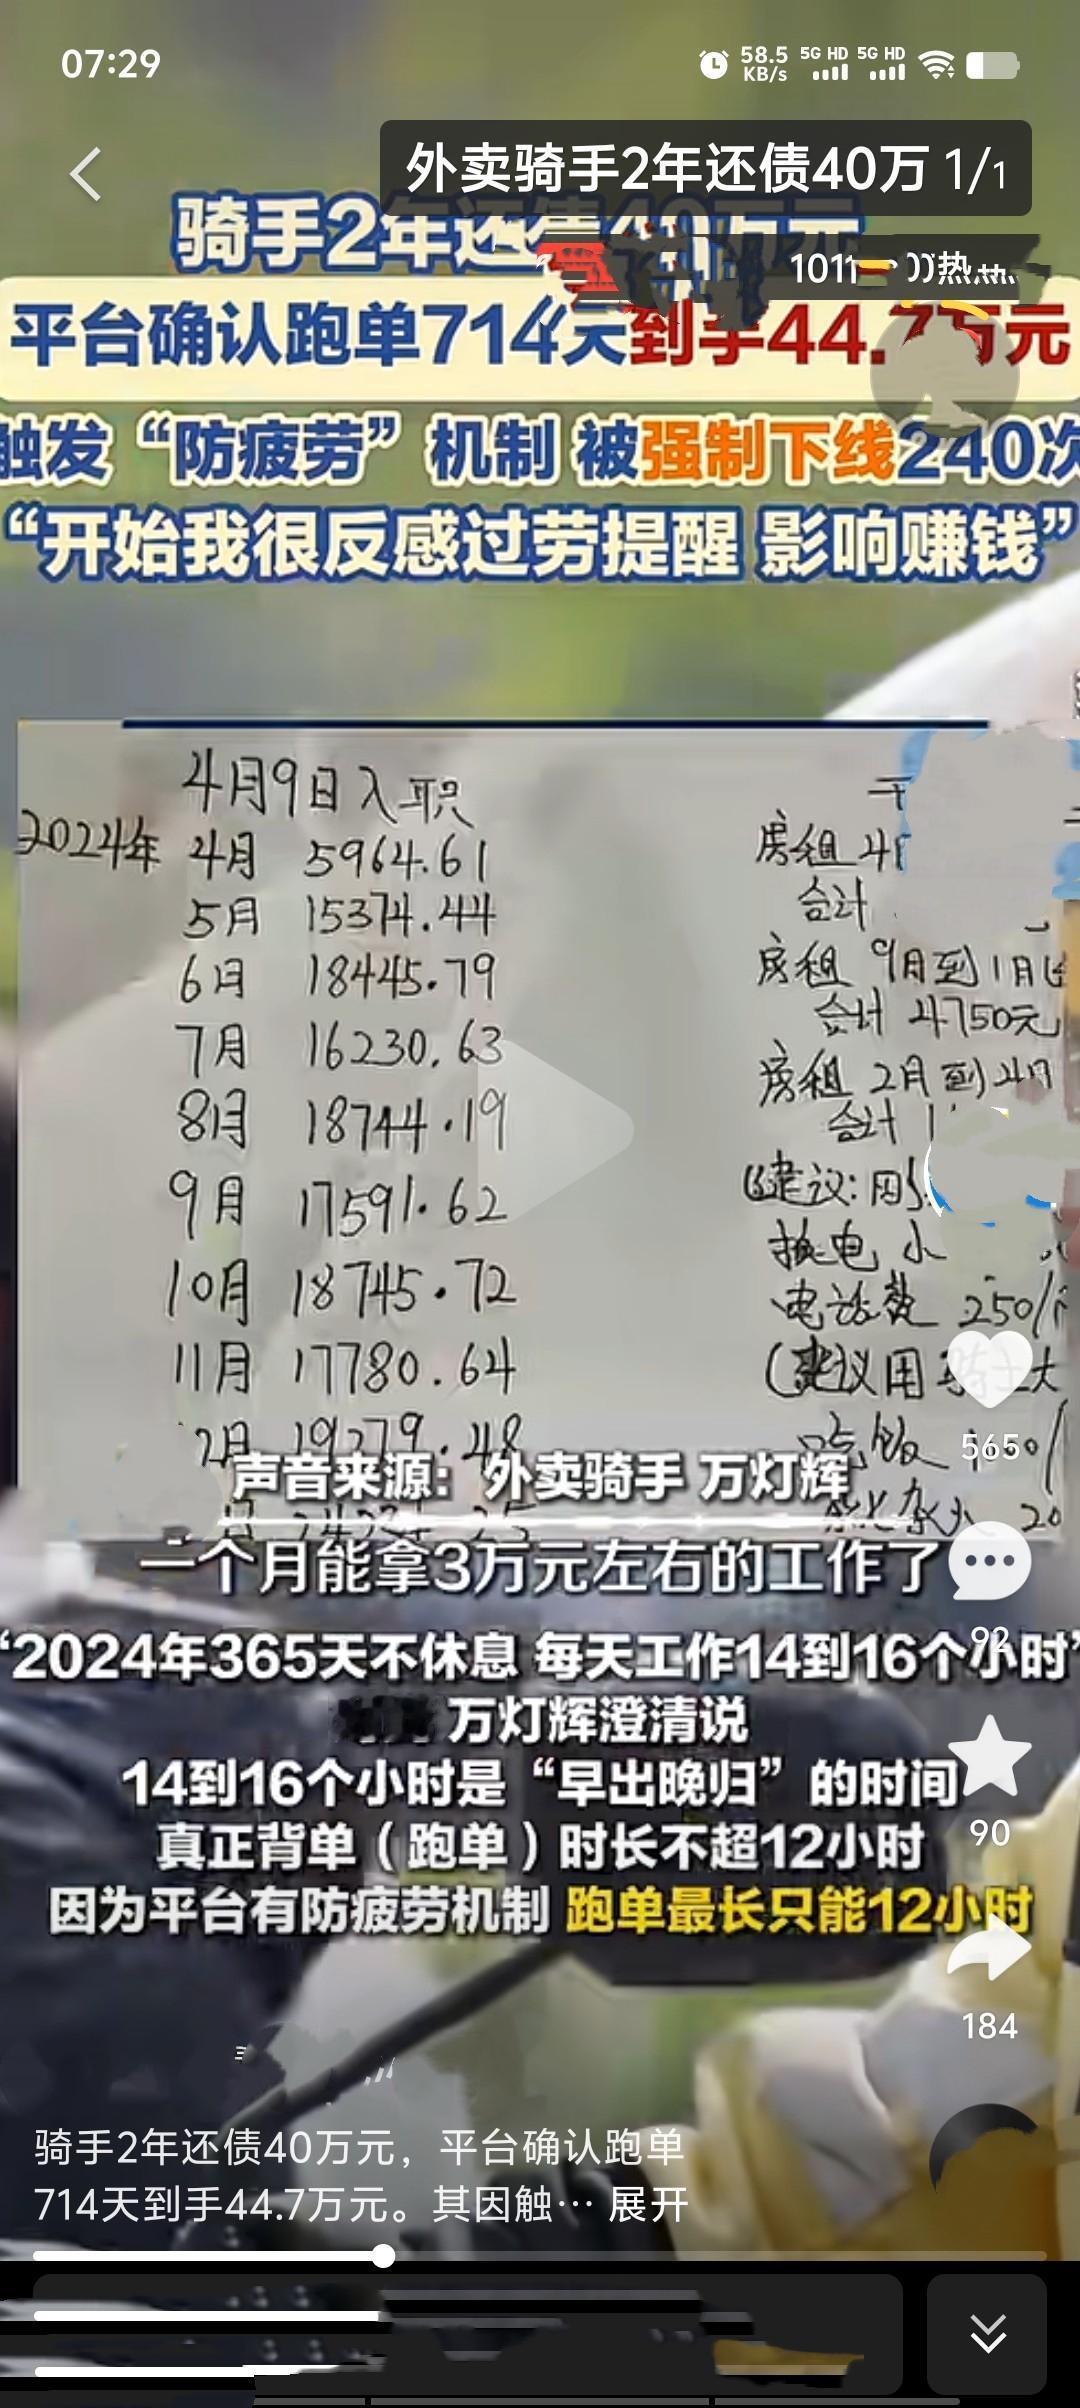 07:29
58.5 KB/s 5G HD 5G HD
外卖骑手2年还债40万 1/1
骑手2年还债40万元
平台确认跑单714天到手44.7万元
触发“防疲劳”机制 被强制下线240次
“开始我很反感过劳提醒 影响赚钱”
4月9日入职
2024年 4月 5964.61
房租
5月 15374.44
合计
6月 18445.79
房租 9月到1月
7月 16230.63
合计 4750元
房租 2月到4月
8月 18744.19
合计
9月 17591.62
(建议:
换电
10月 18745.72
电话费 250/
11月 17780.64
(建议用
2月 19279.48
565
声音来源：外卖骑手 万灯辉
20
一个月能拿3万元左右的工作了
92
“2024年365天不休息 每天工作14到16个小时”
万灯辉澄清说
14到16个小时是“早出晚归”的时间
90
真正背单（跑单）时长不超12小时
因为平台有防疲劳机制 跑单最长只能12小时
184
骑手2年还债40万元，平台确认跑单
714天到手44.7万元。其因触… 展开